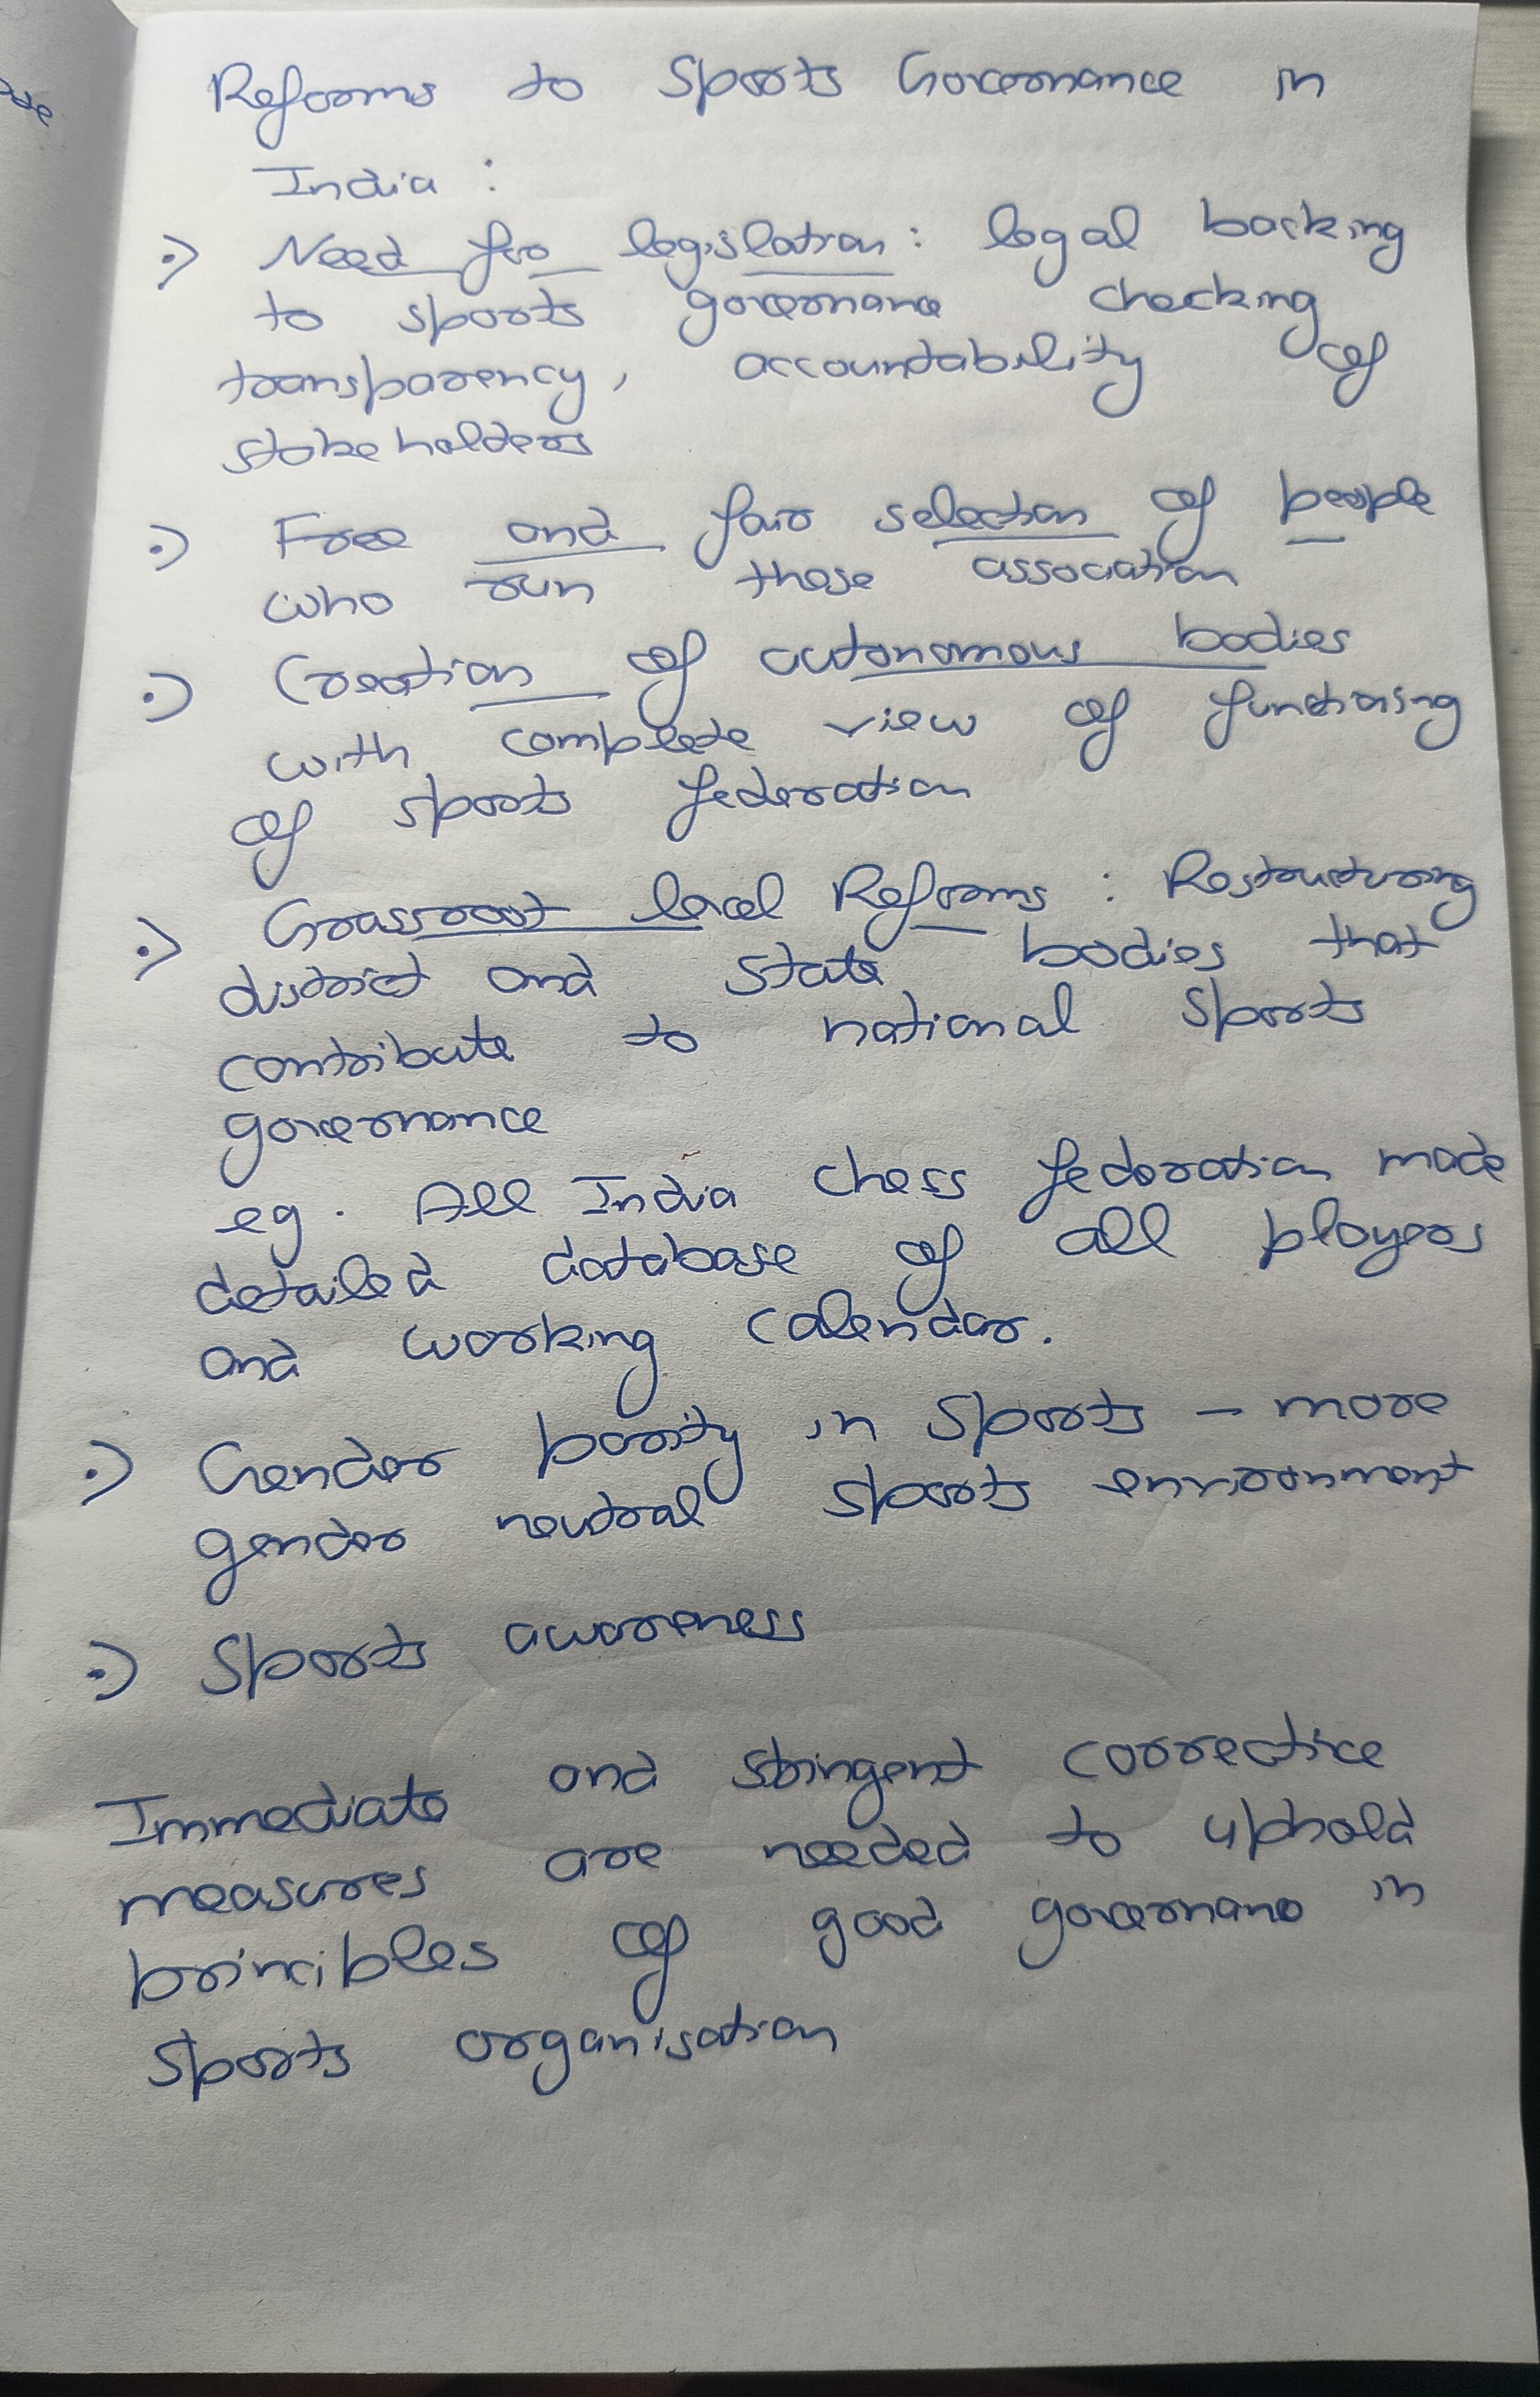 Reforms to Sports Governance in
India :
Need for legislation : legal backing
to sports governance checking
transparency, accountability of
stakeholders
Free and fair selection of people
who run these association
Creation of autonomous bodies
with complete view of functioning
of sports federation
Grassroot level Reforms : Restructuring
district and State bodies that
contribute to national sports
governance
eg. All India chess federation made
detailed database of all players
and working calendar.
Gender parity in sports - more
gender neutral sports environment
Sports awareness
Immediate and stringent corrective
measures are needed to uphold
principles of good governance in
sports organisation